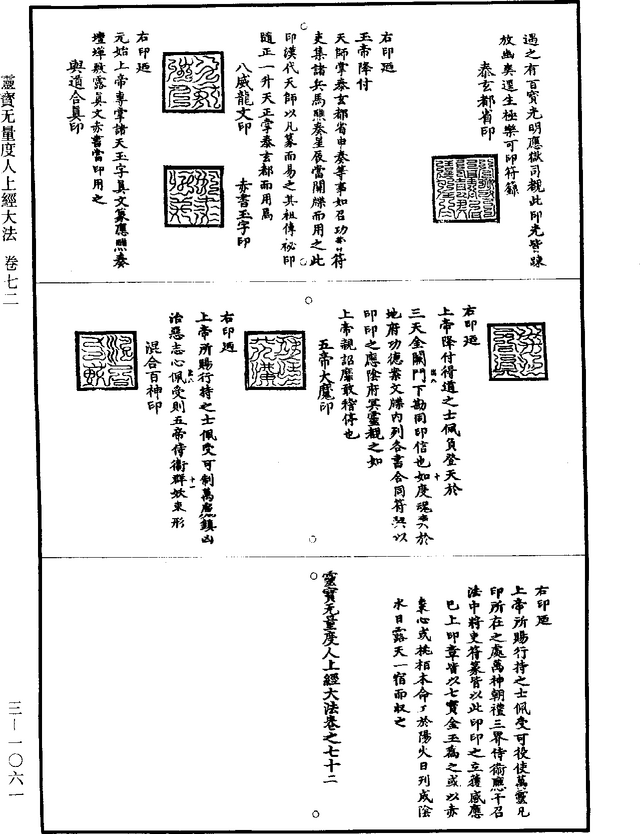 遇之有百寶光明應獄司覩此印光皆疎
放幽爽還生極樂可印符籙
泰玄都省印
右印廼
玉帝降付
天師掌泰玄都省申奏等事如召功曹符
吏集諸兵馬燃奏星辰當關牒而用之此
印漢代天師以凡篆而易之其祖傳秘印
隨正一升天正掌泰玄都而用焉
八威龍文印
赤書玉字印
右印廼
元始上帝專掌諸天玉字真文篆應燃奏
壇墠敷露真文赤書當印用之
與道合真印
右印廼
上帝降付得道之士佩負登天於
三天金闕門下勘同印信也如度魂爽於
地府功德案文牒內列各書合同符契以
印印之應陰府冥靈覩之如
上帝親詔靡敢稽停也
五帝大魔印
右印廼
上帝所賜行持之士佩受可制萬魔鎮凶
治惡志心佩受則五帝侍衛群妖束形
混合百神印
右印廼
上帝所賜行持之士佩受可役使萬靈凡
印所在之處萬神朝禮三界侍衛應干召
法中將吏符篆皆以此印印之立獲感應
已上印章皆以七寶金玉為之或以赤
棗心或桃栢本命之於陽火日列成陰
水日露天一宿而收之
靈寶无量度人上經大法卷之七十二
靈寶无量度人上經大法 卷七二
三—一〇六一